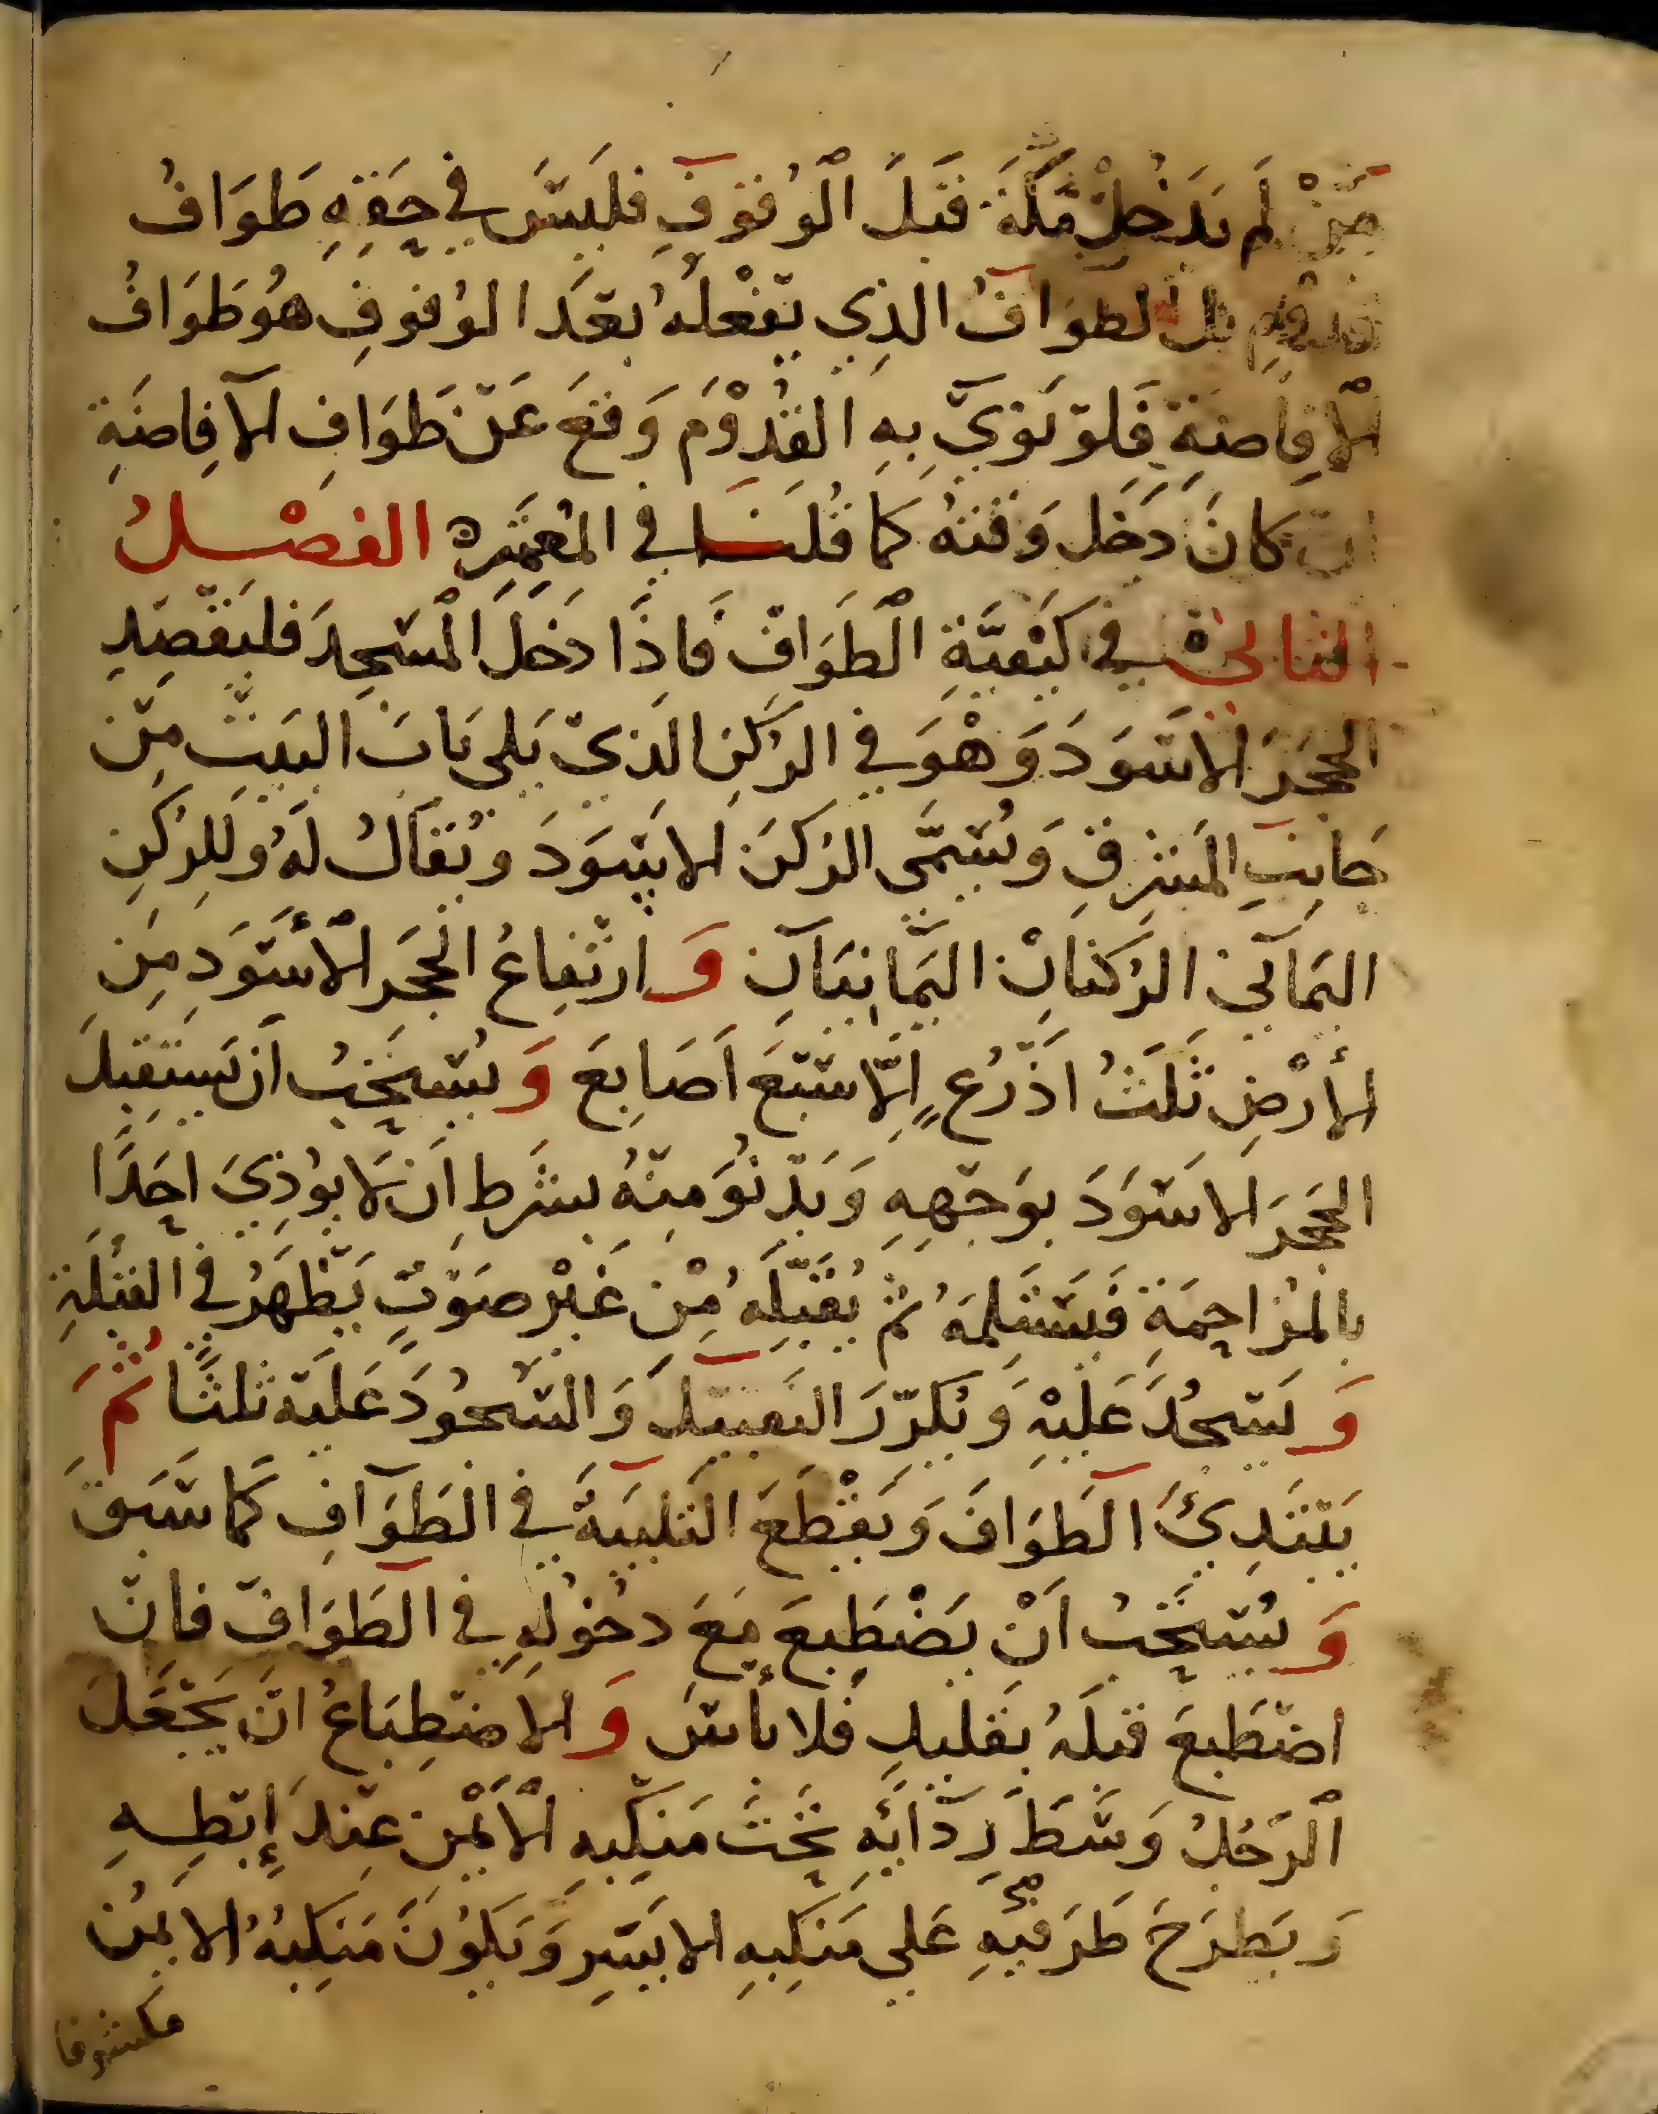 مَنْ لَم يَدخُلْ مَكَّةَ قبَلَ الْوُقوفِ فليَسَ في حَقِّهِ طَوَافُ
قدُومٍ بل الطوَافُ الذِي يَفْعَلُهُ بَعَدَ الوُقوفِ هُوَ طَوَافُ
الْافِاضَةِ فَلَو نَوَيَّ بِهِ القُدُوْمَ وَقعَ عَنَ طَوَافِ الآفِاضَةِ
ان كانَ دَخَل وَقتهُ كما قُلنَا في المُعتَمِرِ الفصْلُ
الثاني في كَيْفيَّةِ الْطَوَاف فَاذَا دَخَلَ الْمَسجِدَ فليَقصِدِ
الحجَرَ الاسَوَدَ وَهْوَ في الرُكنِ الَذيِ يَلى بَابَ البَيَت مِن
جَانِبِ المَشرِقِ وَيُسَمَّى الرُكنَ الاسَوَدَ ويُقَالُ لهُ وَلِلرُكنِ
اليَمَآني الرُكنَانِ اليَمَانِيَآنِ وَارتفِاعُ الحَجَرِ الْأَسوَدِ مِنَ
الأرْضِ ثَلَثُ اذَرُعٍ اِلّا سَبَعَ اَصَابِعَ وَيُستَحَبُ اَن يَستَقبِلَ
الحَجَرَ الاسَوَدَ بوَجهِهِ وَيَدنُوَ مِنهُ بشَرطِ اَن لَا يؤُذِيَ احَدًا
بالمُزاحِمَةِ فَيَستَلِمَهُ ثمُ يُقَبّلَهُ مِنْ غَيْرِ صَوَتٍ يَظَهَرُ في القبُلَةِ
وَيَسجُدَ عَلَيْهِ وَيُكَرِّرَ التَقبيَلَ وَالسُجُودَ عَلَيه ثلثًا ثُمَ
يَبَتَدِئَ الَطَوَافَ وَيَقْطَعَ التَلبيَةَ في الطَوَآفِ كَمَا سَبَقَ
وَيُستَحَبُ اَنْ يَضْطَبِعَ مَعَ دخُولِهِ في الطَوَافِ فان
اضطَبعَ قبَلَهُ بقَليلِ فَلا بأسَ وَالِاضَطِبَاعُ انَ يَجعَلَ
الْرَجُلُ وَسَطَ رِدَائِهِ تحَتَ مَنكِبِهِ الْأَيْمَنِ عِندَ إِبَطِهِ
وَيَطرَحَ طَرَفَيهِ عَلى مَنكِبِهِ الايَسَرِ وَيَكوُنَ مَنكِبُهُ الايمَنُ
مكشوفا